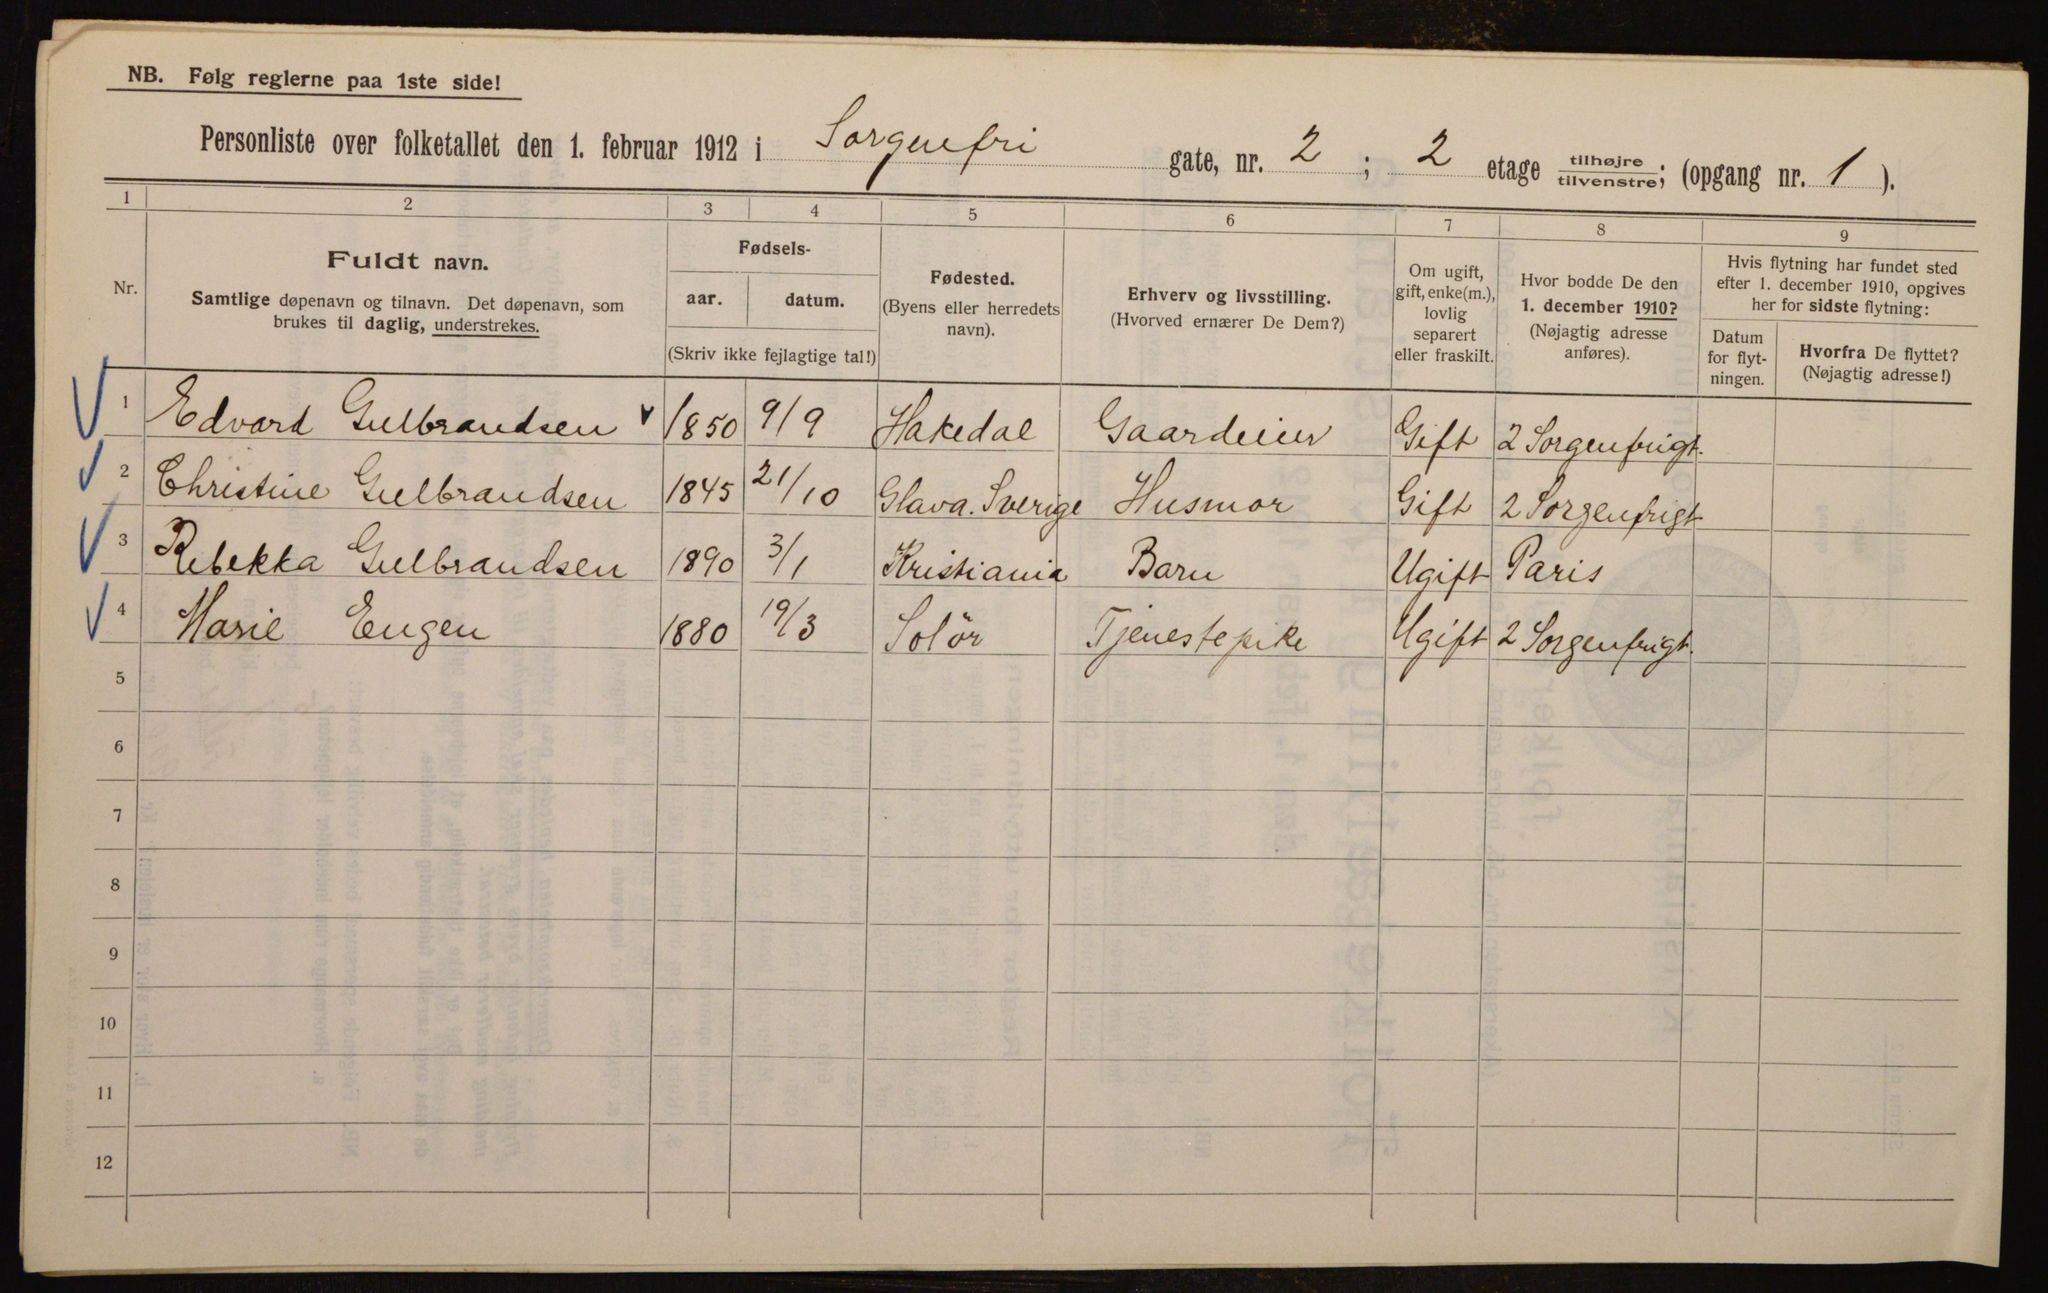 NB. Følg reglerne paa 1ste side!
Personliste over folketallet den 1. februar 1912 i Sorgenfri gate, nr. 2 ; 2 etage tilhøjre/tilvenstre; (opgang nr. 1 ).
1 2 3 4 5 6 7 8 9
Nr.
Fuldt navn.
Samtlige døpenavn og tilnavn. Det døpenavn, som
brukes til daglig, understrekes.
Fødsels-
aar. datum.
(Skriv ikke fejlagtige tal!)
Fødested.
(Byens eller herredets
navn).
Erhverv og livsstilling.
(Hvorved ernærer De Dem?)
Om ugift,
gift, enke(m.),
lovlig
separert
eller fraskilt.
Hvor bodde De den
1. december 1910?
(Nøjagtig adresse
anføres).
Hvis flytning har fundet sted
efter 1. december 1910, opgives
her for sidste flytning:
Datum
for flyt-
ningen.
Hvorfra De flyttet?
(Nøjagtig adresse!)
1 Edvard Gulbrandsen 1850 9/9 Hakedal Gaardeier Gift 2 Sorgenfrigt.
2 Christine Gulbrandsen 1845 21/10 Glava. Sverige Husmor Gift 2 Sorgenfrigt
3 Rebekka Gulbrandsen 1890 3/1 Kristiania Barn Ugift Paris
4 Marie Engen 1880 19/3 Solör Tjenestepike Ugift 2 Sorgenfrigt.
5
6
7
8
9
10
11
12